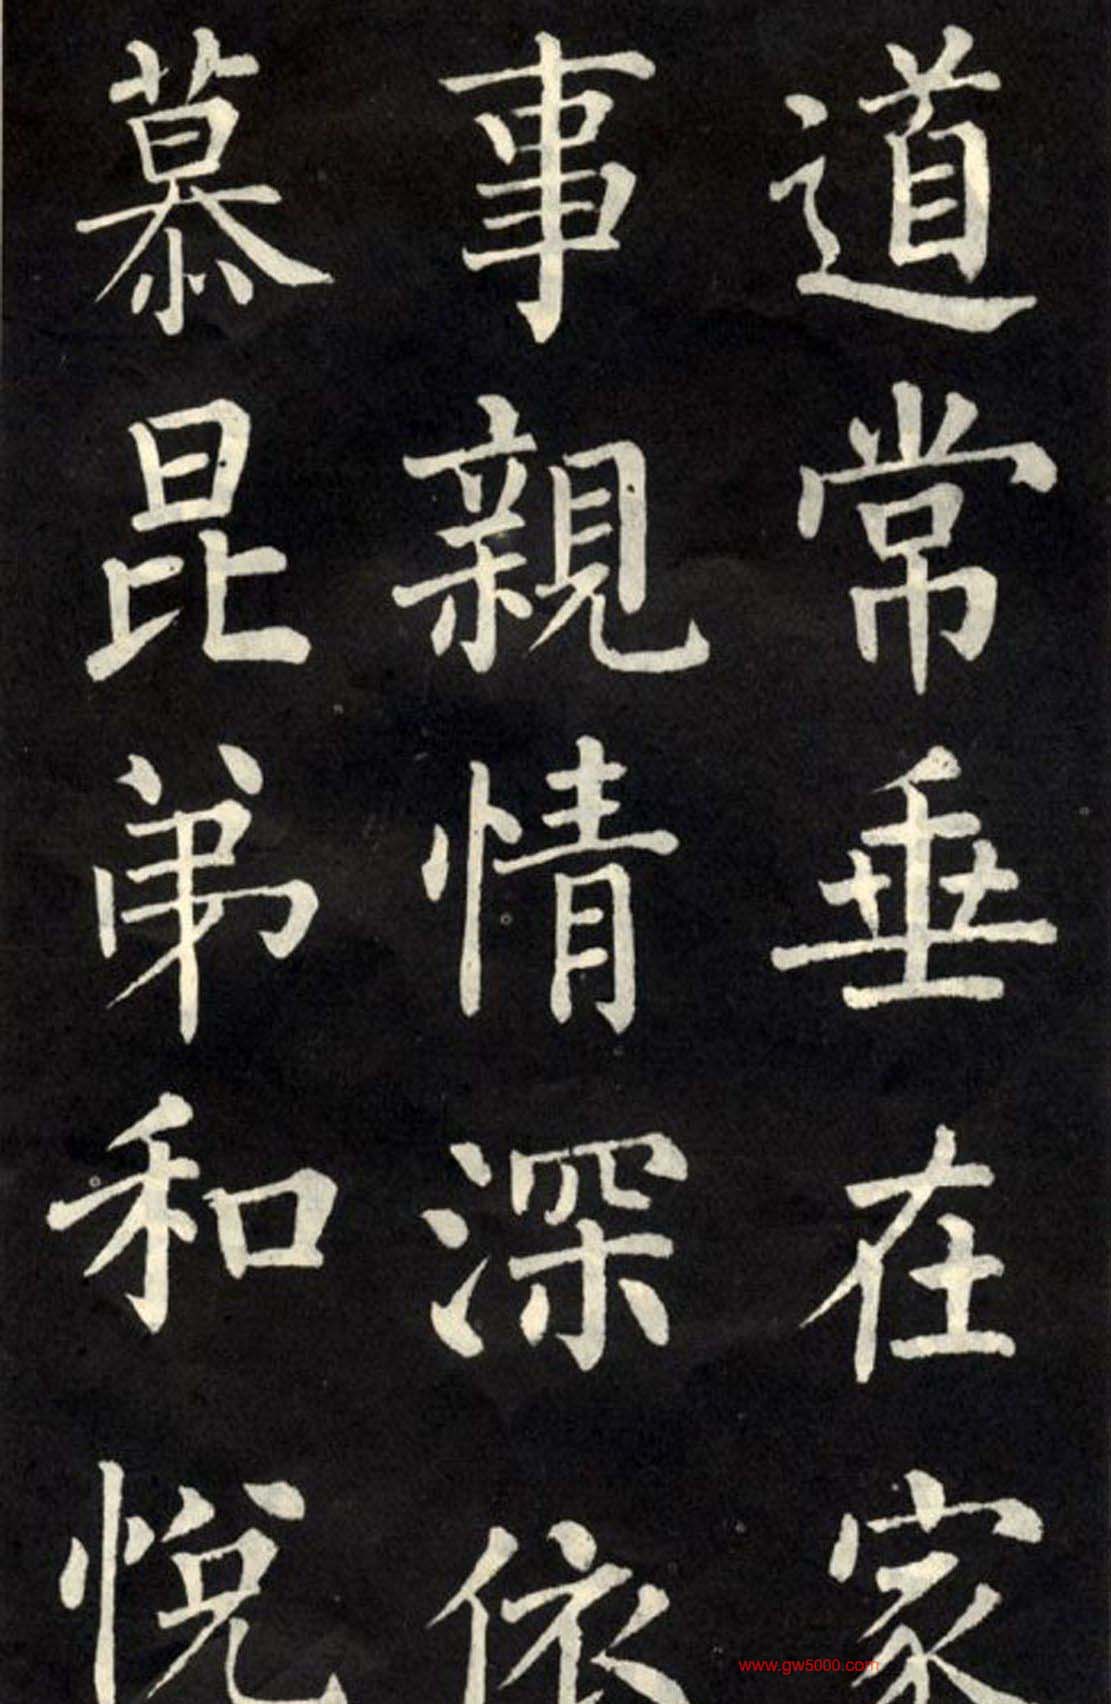 道常垂在家
事親情深依
慕昆弟和悅
www.gw5000.com